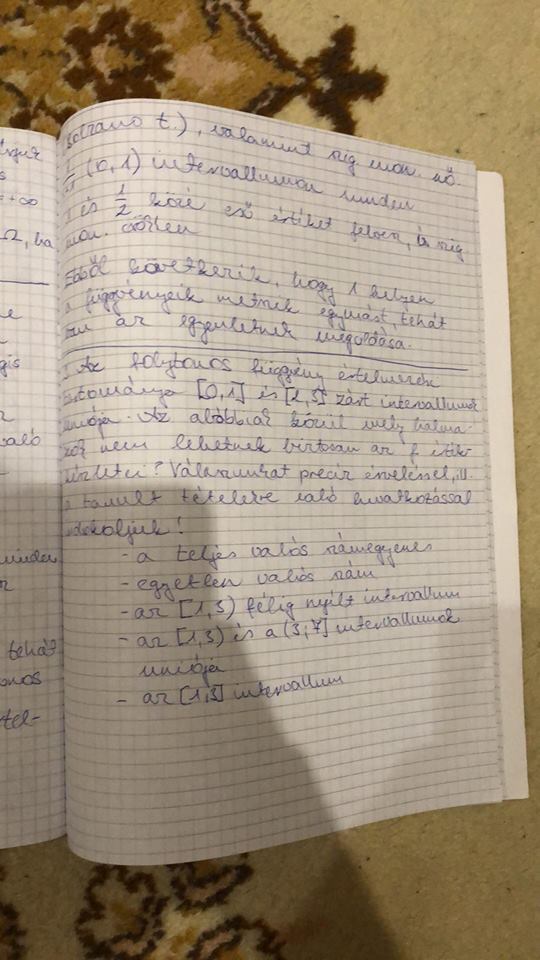 lyzano t.), valamint szig. mon. nő.
(0,1) intervallumon minden
1 és 1/2 közé eső értéket felvesz, és szig.
mon. csökken
Ebből következik, hogy 1 helyen
a függvényeik metszik egymást, tehát
van az egyenletnek megoldása.
Az folytonos függvény értelmezési
tartománya [0,1] és [2,3] zárt intervallumok
uniója. Az alábbiak közül mely halma-
zok nem lehetnek biztosan az f érték-
készletei? Válaszunkat precíz érveléssel, ill.
a tanult tételekre való hivatkozással
indokoljuk!
- a teljes valós számegyenes
- egyetlen valós szám
- az [1,3) félig nyílt intervallum
- az [1,3) és a (3,7] intervallumok
uniója
- az [1,3] intervallum
+∞
Ω, ha
gis
való
minden
tehát
onos
tel-